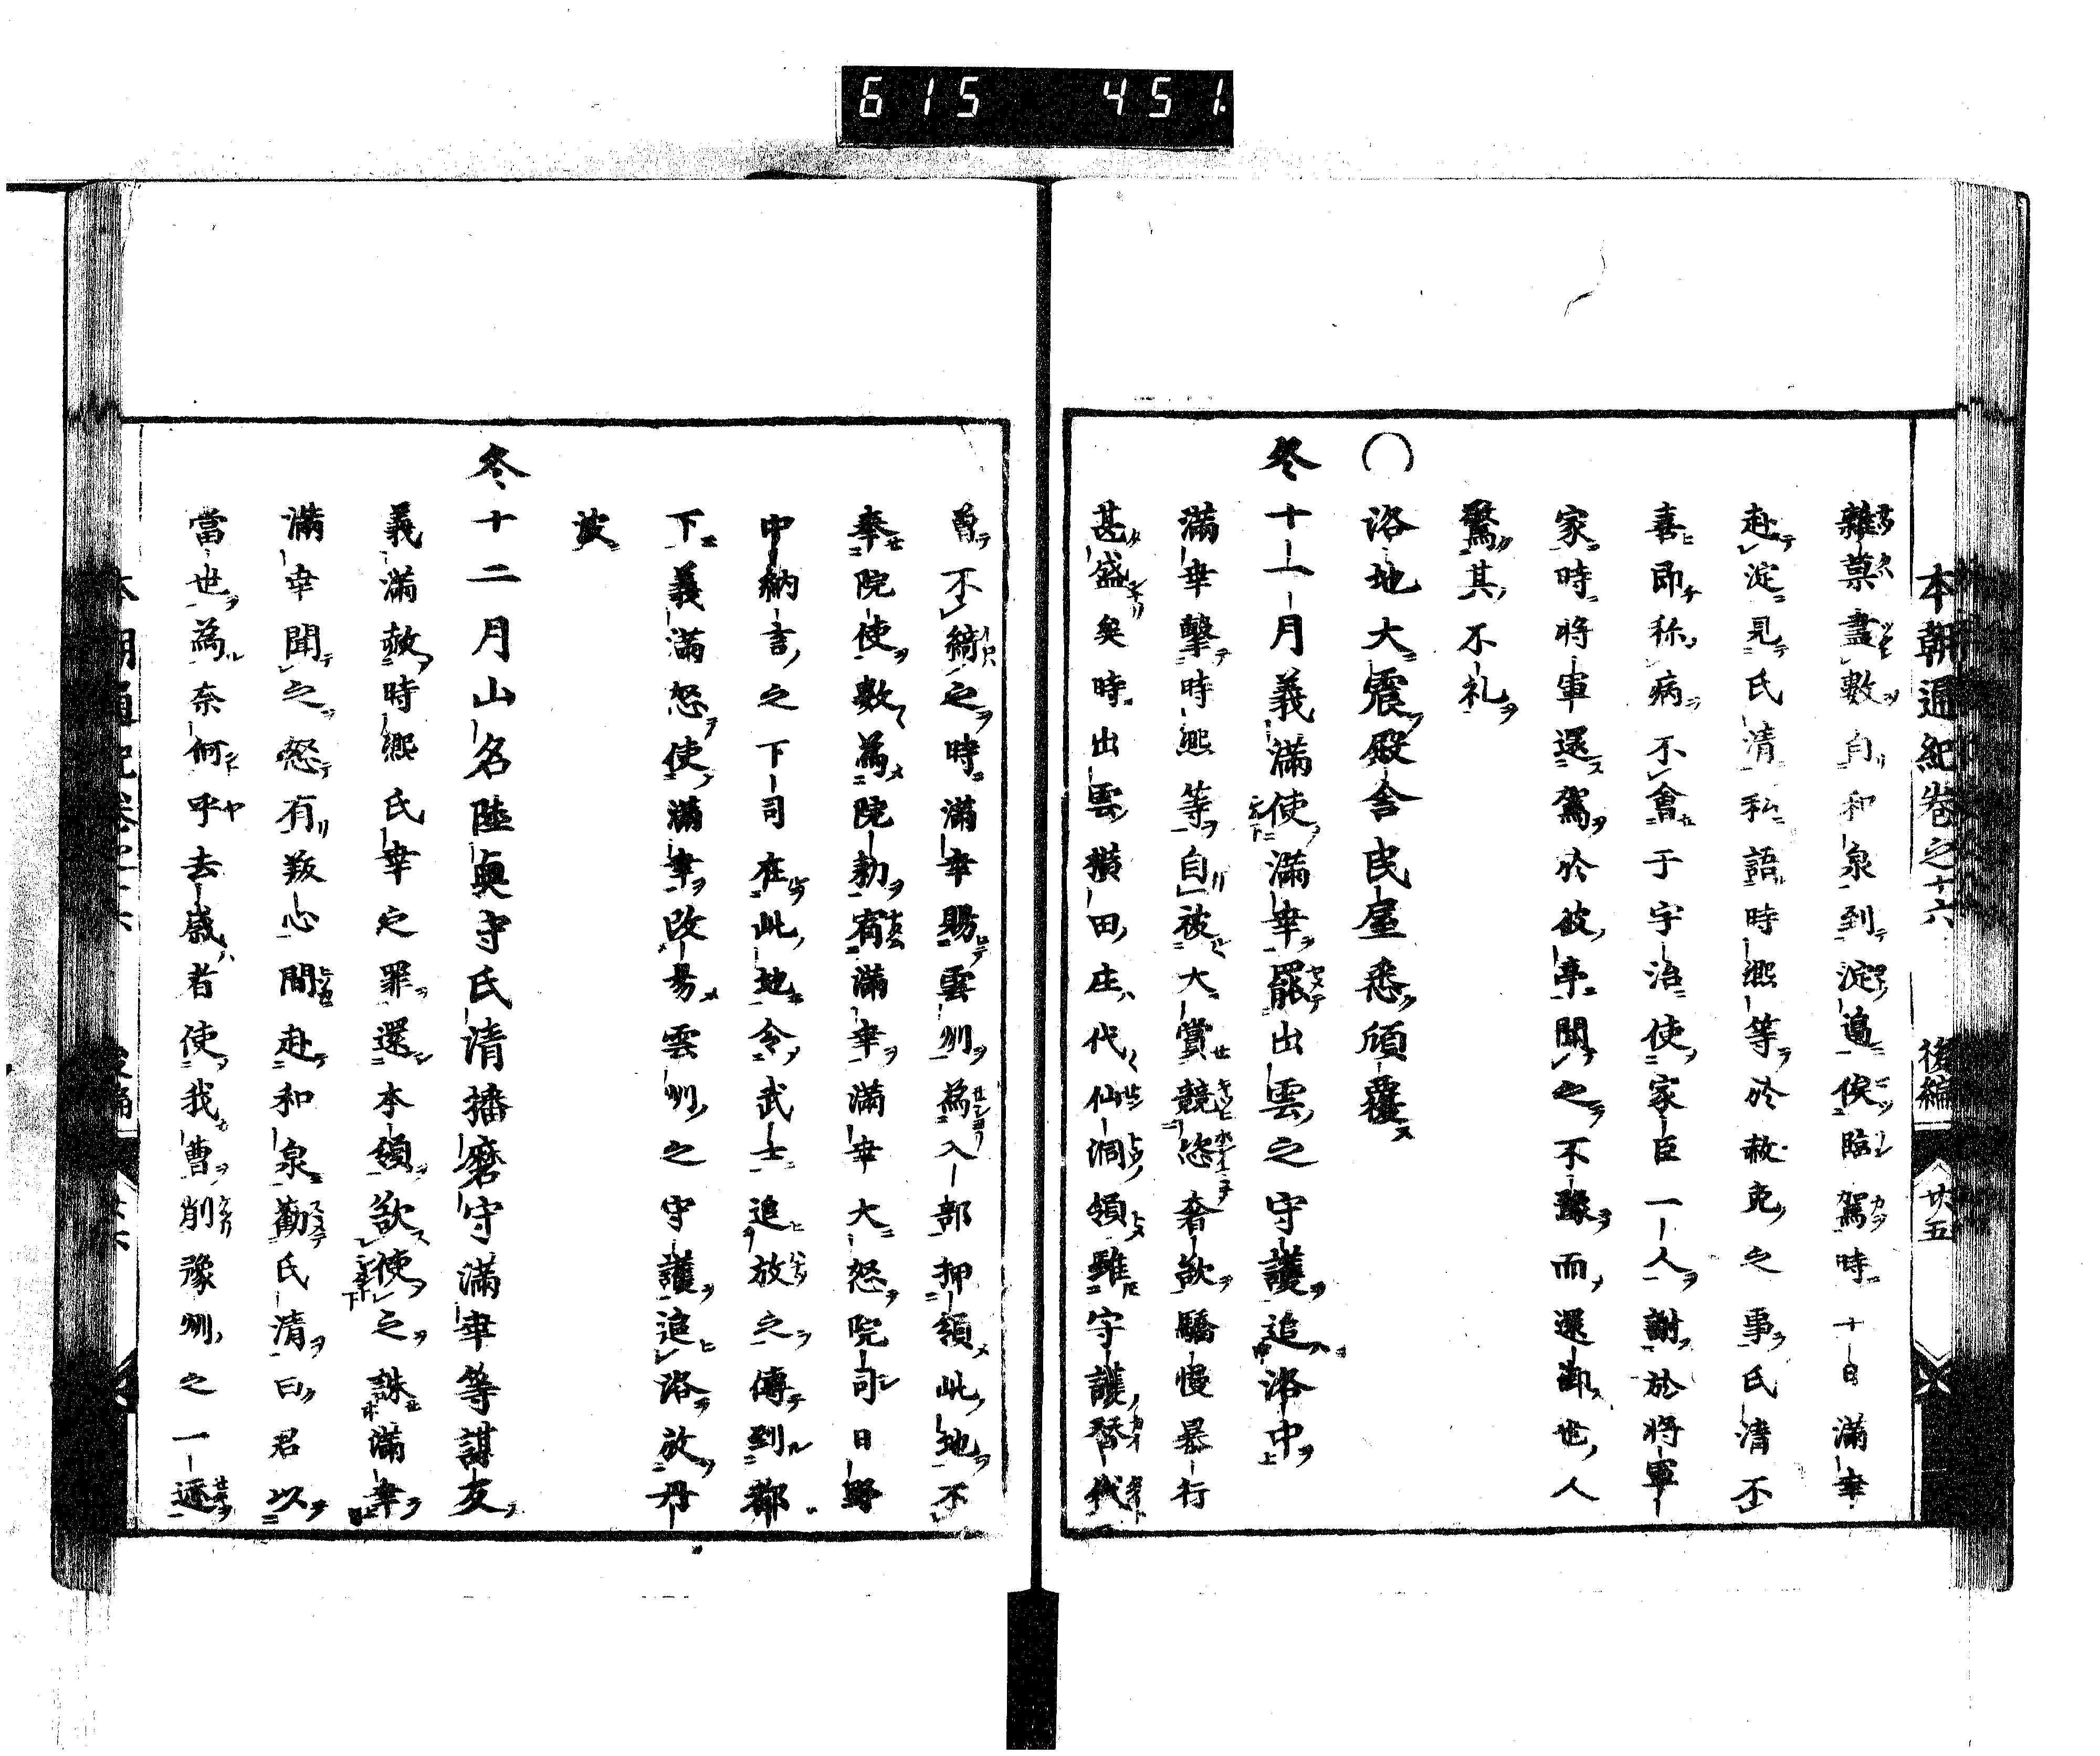 615 451
本朝通紀卷之十六 後編 廿五
雜菓盡數自和泉到淀邉候臨駕時十一日滿幸
赴淀見氏清私語時熈等於赦免之事氏清不
喜即称病不會于宇治使家臣一人謝於將軍
家時將軍還駕於彼亭聞之不豫而還御世人
驚其不礼
○洛地大震殿舎民屋悉頃覆
冬十一月義滿使滿幸罷出雲之守護追洛中
滿幸擊時熈等自被大賞競恣奢欲驕慢暴行
甚盛矣時出雲横田庄代〻仙洞領雖守護替代
曽不綺之時滿幸賜雲州為入部押領此地不
奉院使數〻為院勅宥滿幸滿幸大怒院司日野
中納言之下司在此地令武士追放之傳到都
下義滿怒使滿幸改易雲州之守護追洛放丹
波
冬十二月山名陸奥守氏清播磨守滿幸等謀友
義滿赦時熈氏幸之罪還本領欲使之誅滿幸
滿幸聞之怒有叛心間赴和泉勸氏清曰君以
當世為奈何乎去歳者使我曹削豫州之一逕